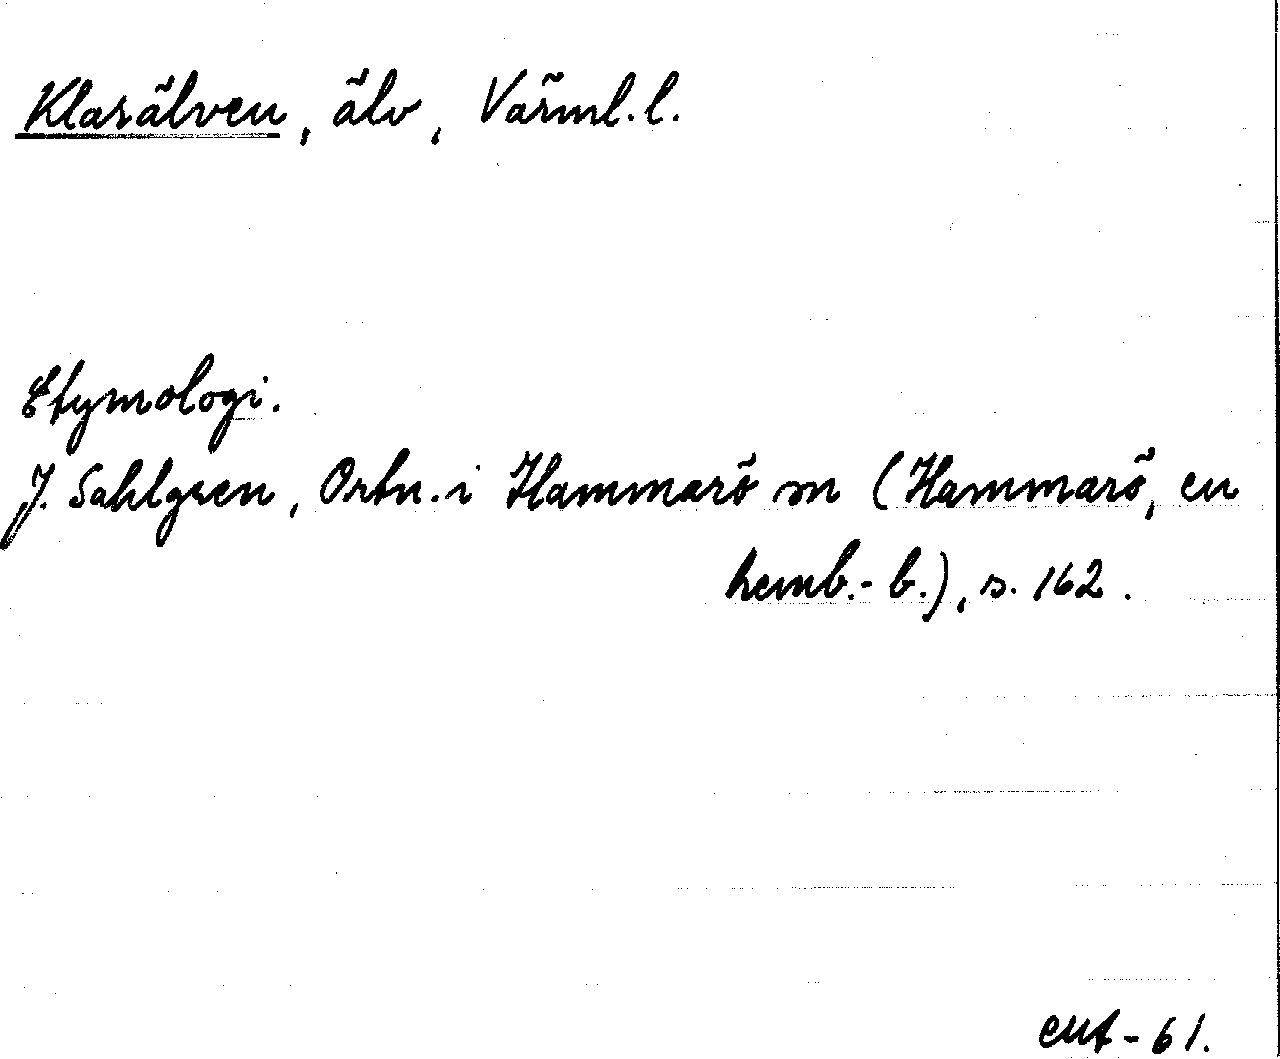 Klarälven, älv, Värml. l.
Etymologi.
J. Sahlgren, Ortn. i Hammarö sn (Hammarö, en
hemb.-b.), s. 162.
-61.